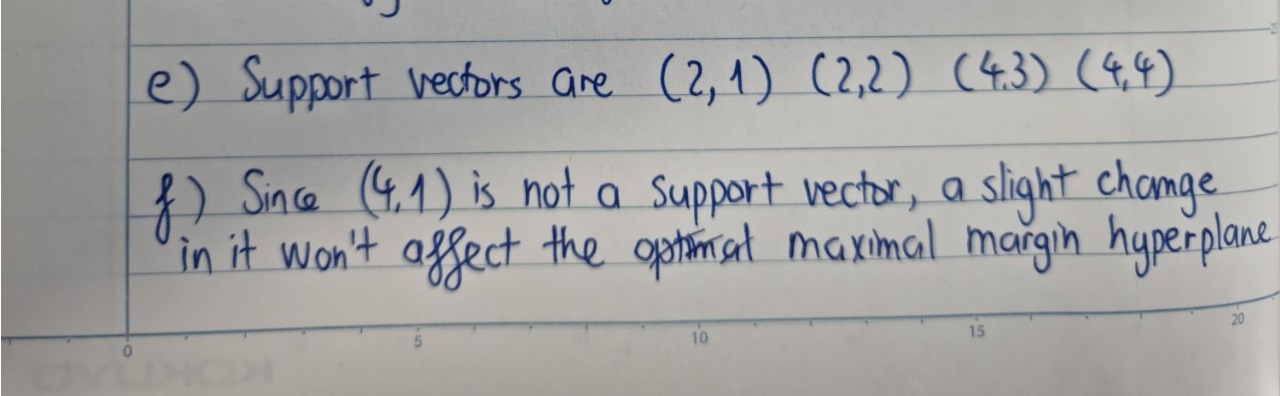 e) Support vectors are (2,1) (2,2) (4,3) (4,4)
f) Since (4,1) is not a support vector, a slight change
in it won't affect the optimal maximal margin hyperplane
0 5 10 15 20